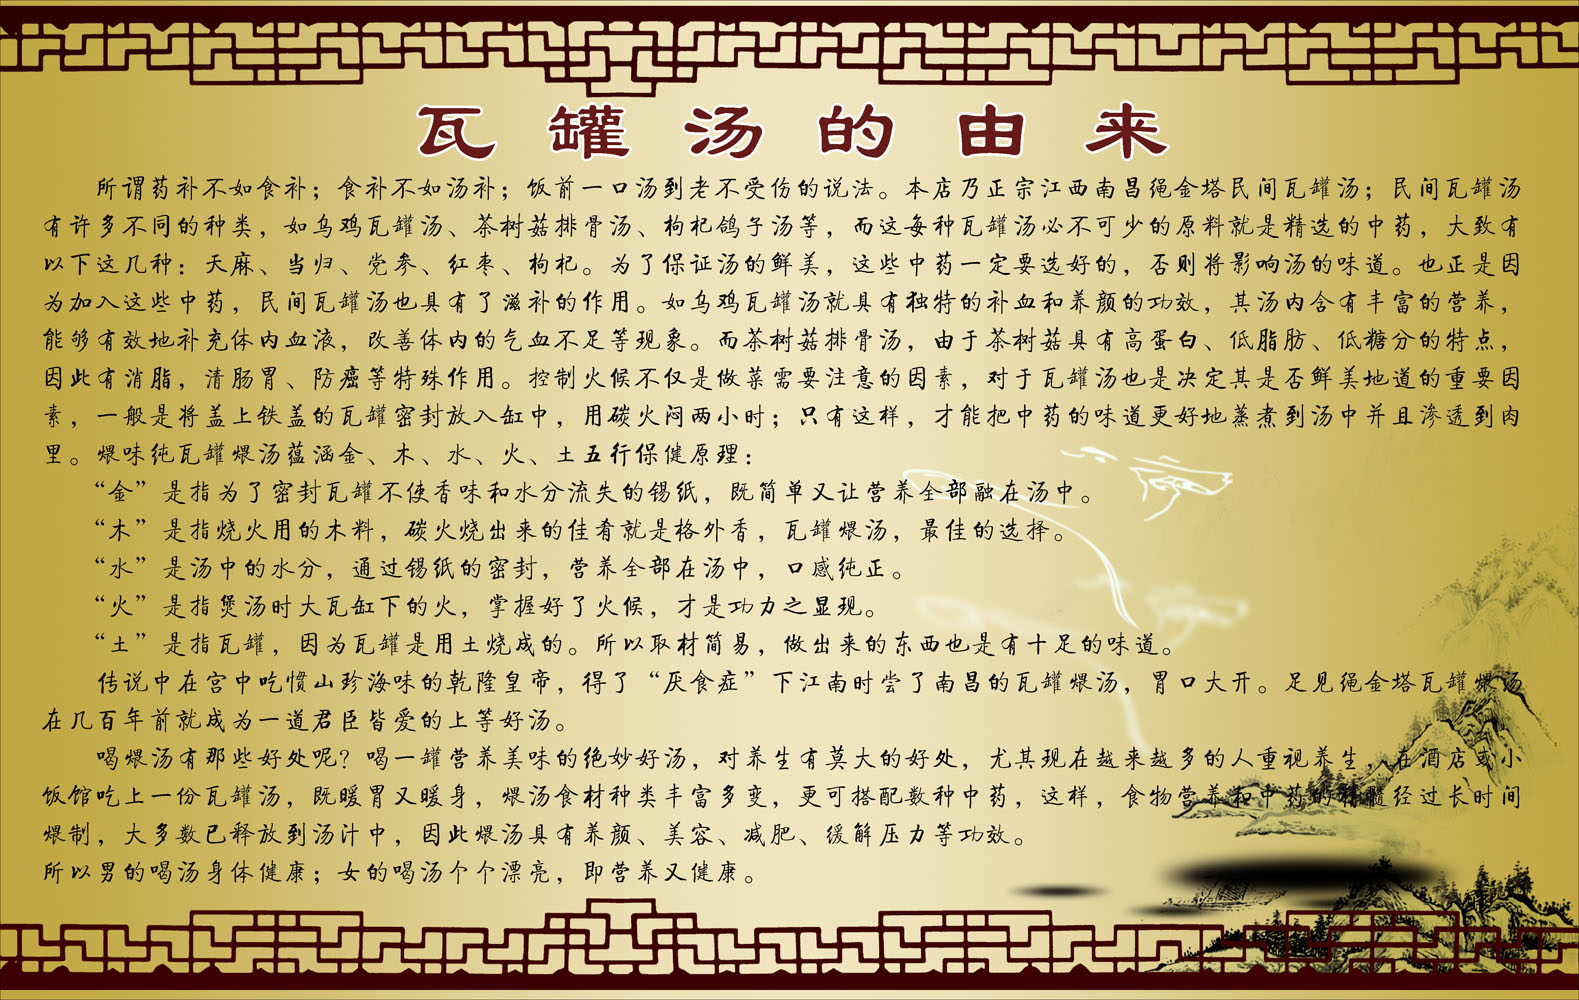 瓦罐汤的由来
所谓药补不如食补；食补不如汤补；饭前一口汤到老不受伤的说法。本店乃正宗江西南昌绳金塔民间瓦罐汤；民间瓦罐汤
有许多不同的种类，如乌鸡瓦罐汤、茶树菇排骨汤、枸杞鸽子汤等，而这每种瓦罐汤必不可少的原料就是精选的中药，大致有
以下这几种：天麻、当归、党参、红枣、枸杞。为了保证汤的鲜美，这些中药一定要选好的，否则将影响汤的味道。也正是因
为加入这些中药，民间瓦罐汤也具有了滋补的作用。如乌鸡瓦罐汤就具有独特的补血和养颜的功效，其汤内含有丰富的营养，
能够有效地补充体内血液，改善体内的气血不足等现象。而茶树菇排骨汤，由于茶树菇具有高蛋白、低脂肪、低糖分的特点，
因此有消脂，清肠胃、防癌等特殊作用。控制火候不仅是做菜需要注意的因素，对于瓦罐汤也是决定其是否鲜美地道的重要因
素，一般是将盖上铁盖的瓦罐密封放入缸中，用碳火闷两小时；只有这样，才能把中药的味道更好地蒸煮到汤中并且渗透到肉
里。煨味纯瓦罐煨汤蕴涵金、木、水、火、土五行保健原理：
“金”是指为了密封瓦罐不使香味和水分流失的锡纸，既简单又让营养全部融在汤中。
“木”是指烧火用的木料，碳火烧出来的佳肴就是格外香，瓦罐煨汤，最佳的选择。
“水”是汤中的水分，通过锡纸的密封，营养全部在汤中，口感纯正。
“火”是指煲汤时大瓦缸下的火，掌握好了火候，才是功力之显现。
“土”是指瓦罐，因为瓦罐是用土烧成的。所以取材简易，做出来的东西也是有十足的味道。
传说中在宫中吃惯山珍海味的乾隆皇帝，得了“厌食症”下江南时尝了南昌的瓦罐煨汤，胃口大开。足见绳金塔瓦罐煨汤
在几百年前就成为一道君臣皆爱的上等好汤。
喝煨汤有那些好处呢？喝一罐营养美味的绝妙好汤，对养生有莫大的好处，尤其现在越来越多的人重视养生，在酒店或小
饭馆吃上一份瓦罐汤，既暖胃又暖身，煨汤食材种类丰富多变，更可搭配数种中药，这样，食物营养和中药的精髓经过长时间
煨制，大多数已释放到汤汁中，因此煨汤具有养颜、美容、减肥、缓解压力等功效。
所以男的喝汤身体健康；女的喝汤个个漂亮，即营养又健康。